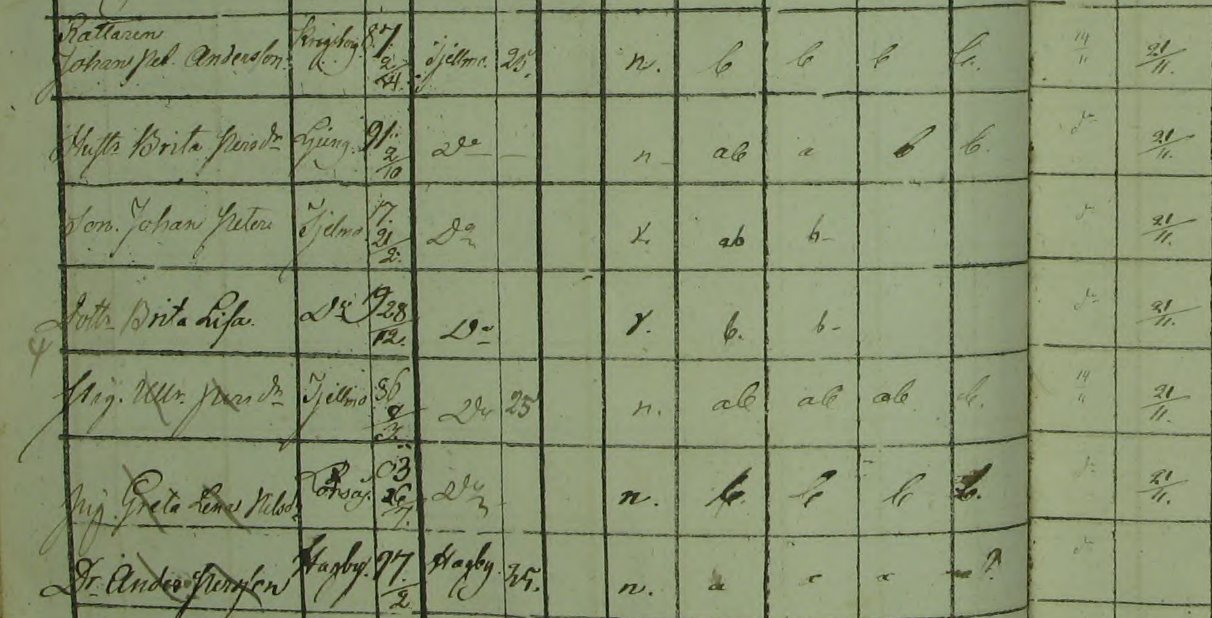 Rättaren
Johan Pet. Andersson Krigsbg. 87. 2/24. Tjellmo. 25. n. b b b b. 14/11 21/11.
Hustr Brita Persdr Ljung. 91. 2/10 Do n ab a b b. do 21/11.
Son. Johan Peter Tjelmo 17. 21/2. Do ab b do 21/11.
Dottr Brita Lisa. Do 19 28/12. Do b. b do 21/11.
Pig. Persdr Tjellmo 86 Do 25 n. ab ab ab b. 14/11 21/11.
Pig. Greta Lena Nilsdr 03 26/7. Do n. b. b b b. do 21/11.
Dr. Anders Persson Hagby. 97. /2 Hagby. 25. n. a a a ? do